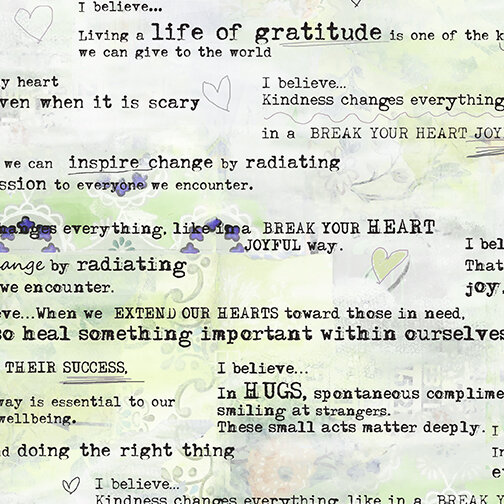 I believe...
Living a life of gratitude is one of the k
we can give to the world
y heart
ven when it is scary
I believe...
Kindness changes everything
in a BREAK YOUR HEART JOY
we can inspire change by radiating
ssion to everyone we encounter.
hanges everything, like in a BREAK YOUR HEART
JOYFUL way.
ange by radiating
we encounter.
I bel
That
joy.
eve...When we EXTEND OUR HEARTS toward those in need,
so heal something important within ourselves
THEIR SUCCESS,
way is essential to our
wellbeing.
d doing the right thing
I believe...
In HUGS, spontaneous complime
smiling at strangers.
These small acts matter deeply.
I
In
ev
I believe...
Kindness changes everything like in a BREAK